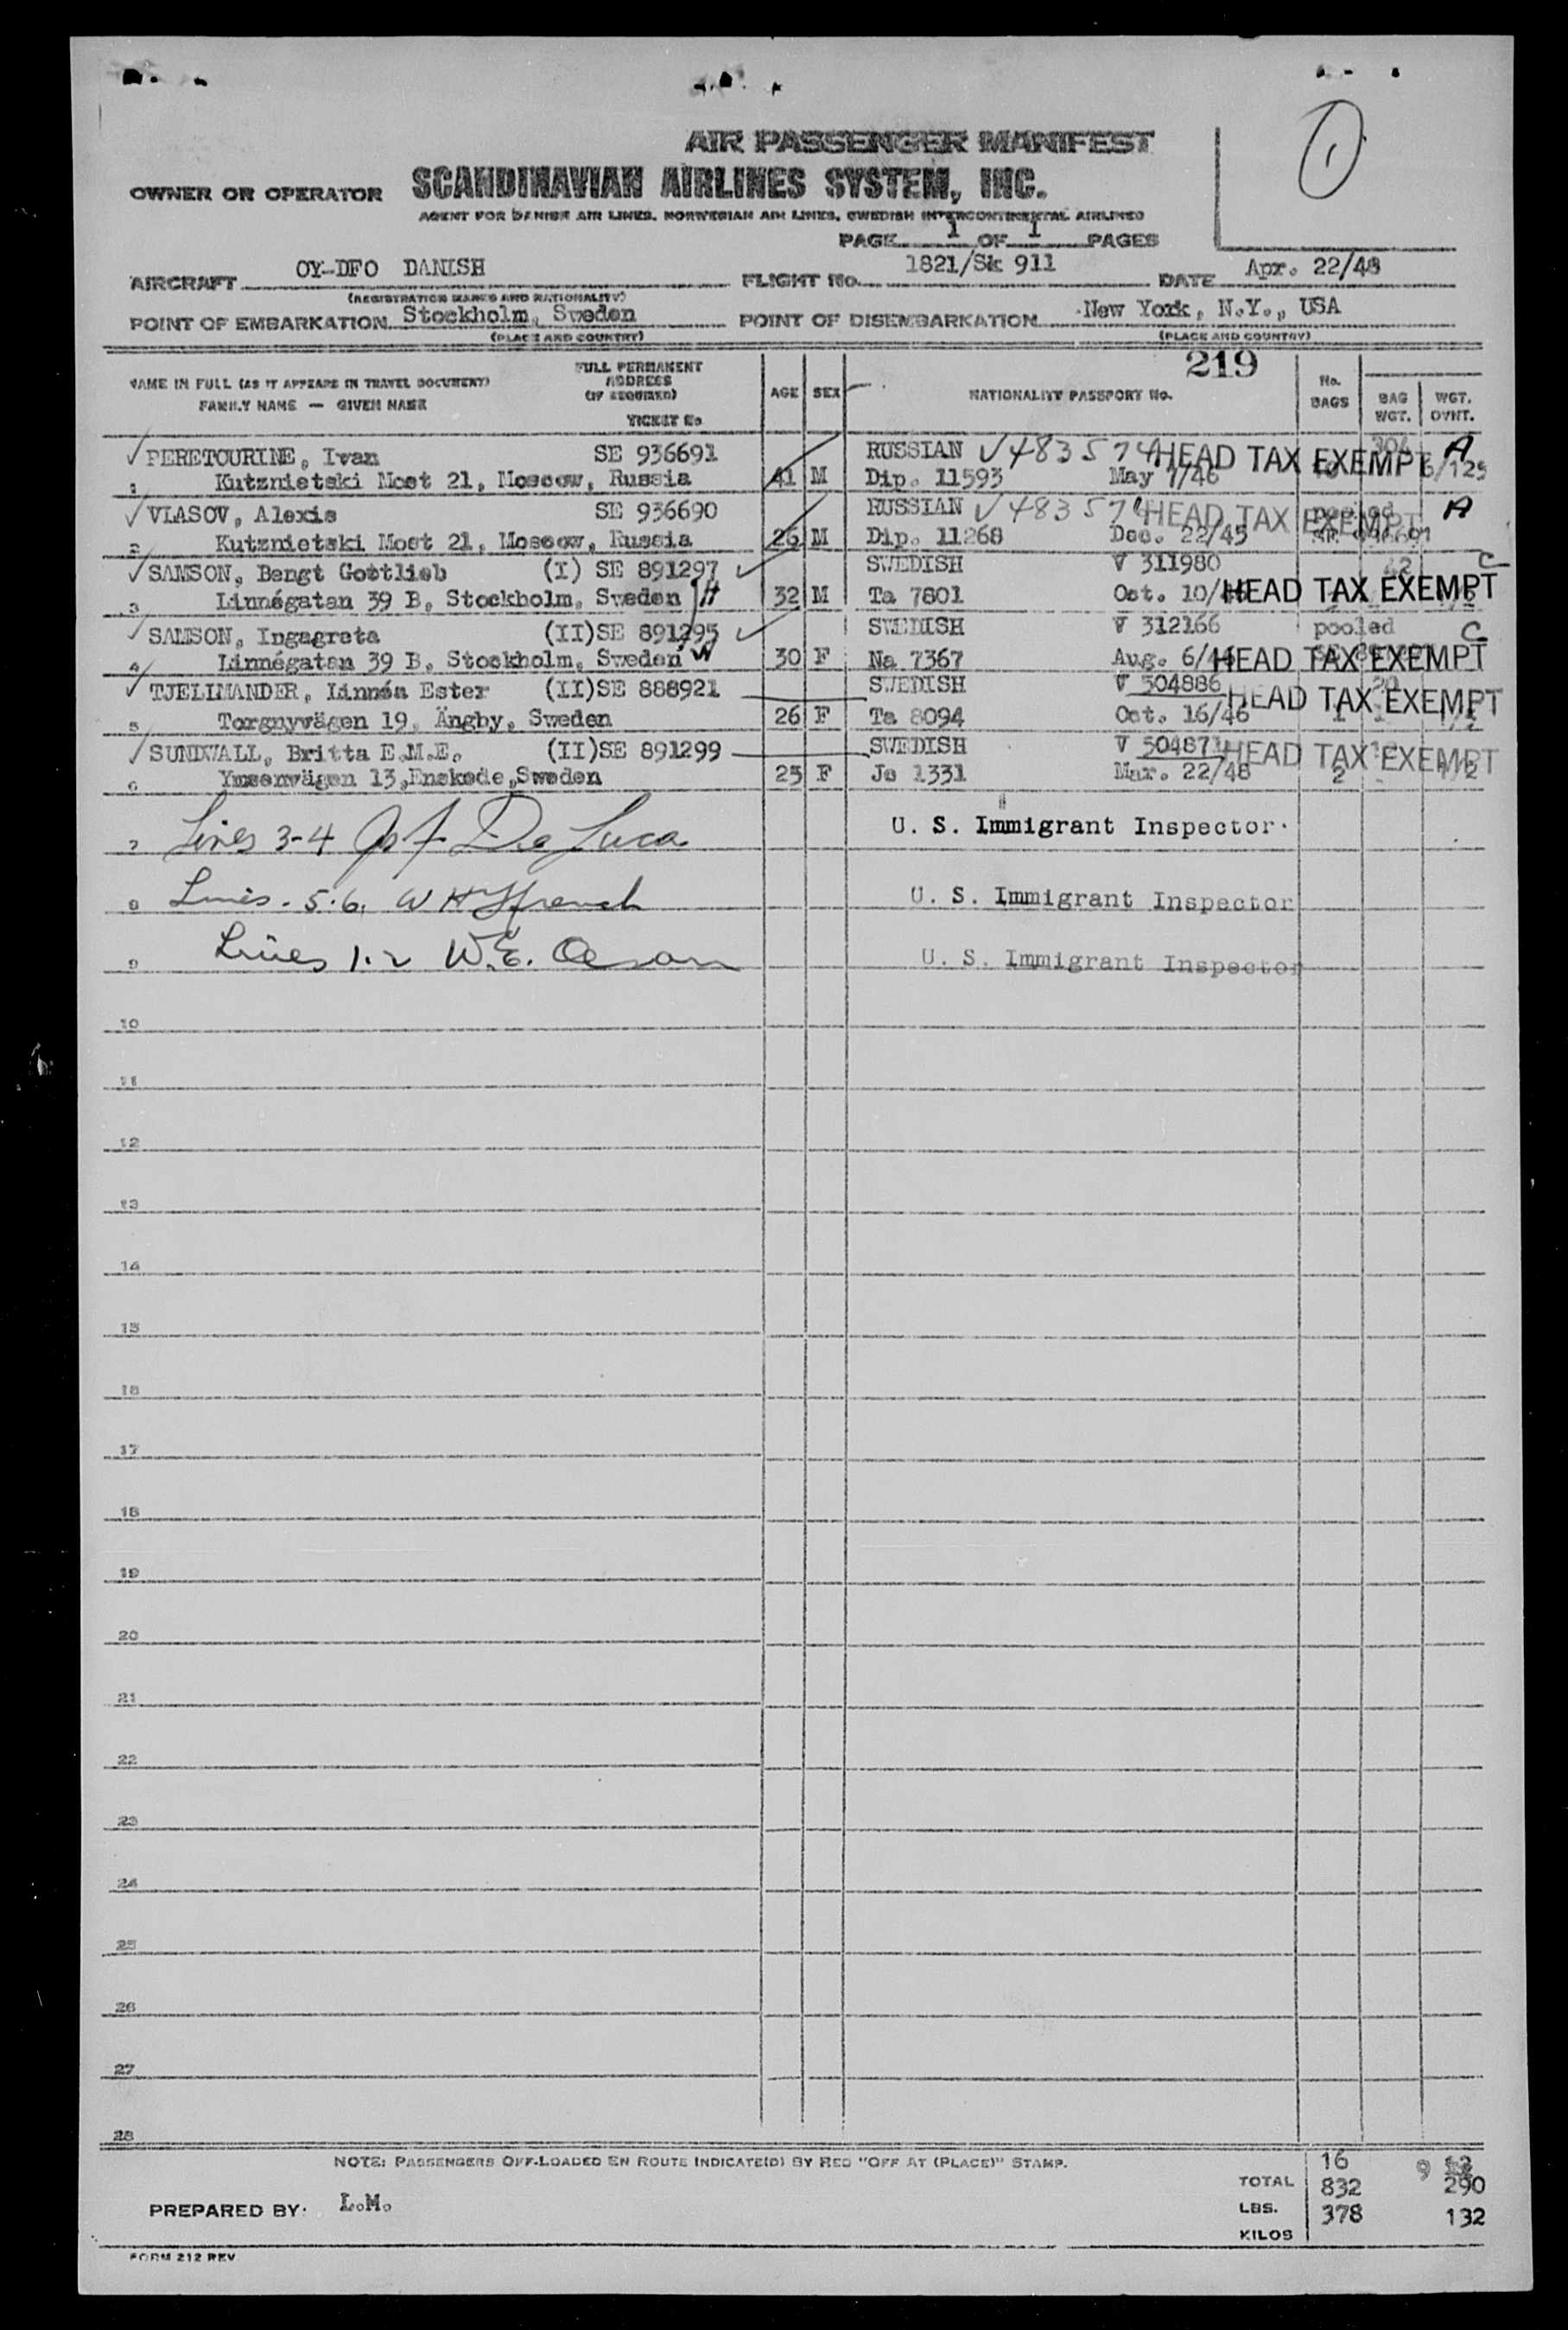 AIR PASSENGER MANIFEST
1
OWNER OR OPERATOR SCANDINAVIAN AIRLINES SYSTEM, INC.
AGENT FOR DANISH AIR LINES, NORWEGIAN AIR LINES, SWEDISH INTERCONTINENTAL AIRLINES
PAGE 1 OF 1 PAGES
AIRCRAFT OY-DFO DANISH FLIGHT No. 1821/Sk 911 DATE Apr. 22/48
(REGISTRATION MARKS AND NATIONALITY)
POINT OF EMBARKATION Stockholm, Sweden POINT OF DISEMBARKATION New York, N.Y., USA
(PLACE AND COUNTRY) (PLACE AND COUNTRY)
219
NAME IN FULL (AS IT APPEARS IN TRAVEL DOCUMENT)
FAMILY NAME — GIVEN NAME
FULL PERMANENT
ADDRESS
(IF REQUIRED)
TICKET No
AGE SEX NATIONALITY PASSPORT No. No. BAGS BAG WGT. WGT. OVHT.
✓ PERETOURINE, Ivan SE 936691 RUSSIAN V483574 HEAD TAX EXEMPT A
1 Kutznietski Most 21, Moscow, Russia 41 M Dip. 11593 May 7/46
✓ VLASOV, Alexis SE 936690 RUSSIAN V48357 HEAD TAX EXEMPT A
2 Kutznietski Most 21, Moscow, Russia 26 M Dip. 11268 Dec. 22/45
✓ SAMSON, Bengt Gottlieb (I) SE 891297 ✓ SWEDISH V 311980 42 C
3 Linnégatan 39 B, Stockholm, Sweden H 32 M Ta 7801 Oct. 10/ HEAD TAX EXEMPT
✓ SAMSON, Ingagreta (II)SE 891295 ✓ SWEDISH V 312166 pooled C
4 Linnégatan 39 B, Stockholm, Sweden W 30 F Na 7367 Aug. 6/ HEAD TAX EXEMPT
✓ TJELIMANDER, Linnéa Ester (II)SE 888921 SWEDISH V 504886 HEAD TAX EXEMPT
5 Torgnyvägen 19, Ängby, Sweden 26 F Ta 8094 Oct. 16/46
✓ SUNDWALL, Britta E.M.E. (II)SE 891299 SWEDISH V 504871 HEAD TAX EXEMPT
6 Ymsenvägen 13,Enskede,Sweden 25 F Je 1331 Mar. 22/48 2
7 Lines 3-4 De Luca U. S. Immigrant Inspector
8 Lines. 5.6. W H Ffrench U. S. Immigrant Inspector
9 Lines 1.2 W.E. U. S. Immigrant Inspector
10
11
12
13
14
15
16
17
18
19
20
21
22
23
24
25
26
27
28
NOTE: PASSENGERS OFF-LOADED EN ROUTE INDICATE(D) BY RED "OFF AT (PLACE)" STAMP.
16 9
TOTAL 832 290
PREPARED BY: L.M. LBS. 378 132
KILOS
FORM 212 REV